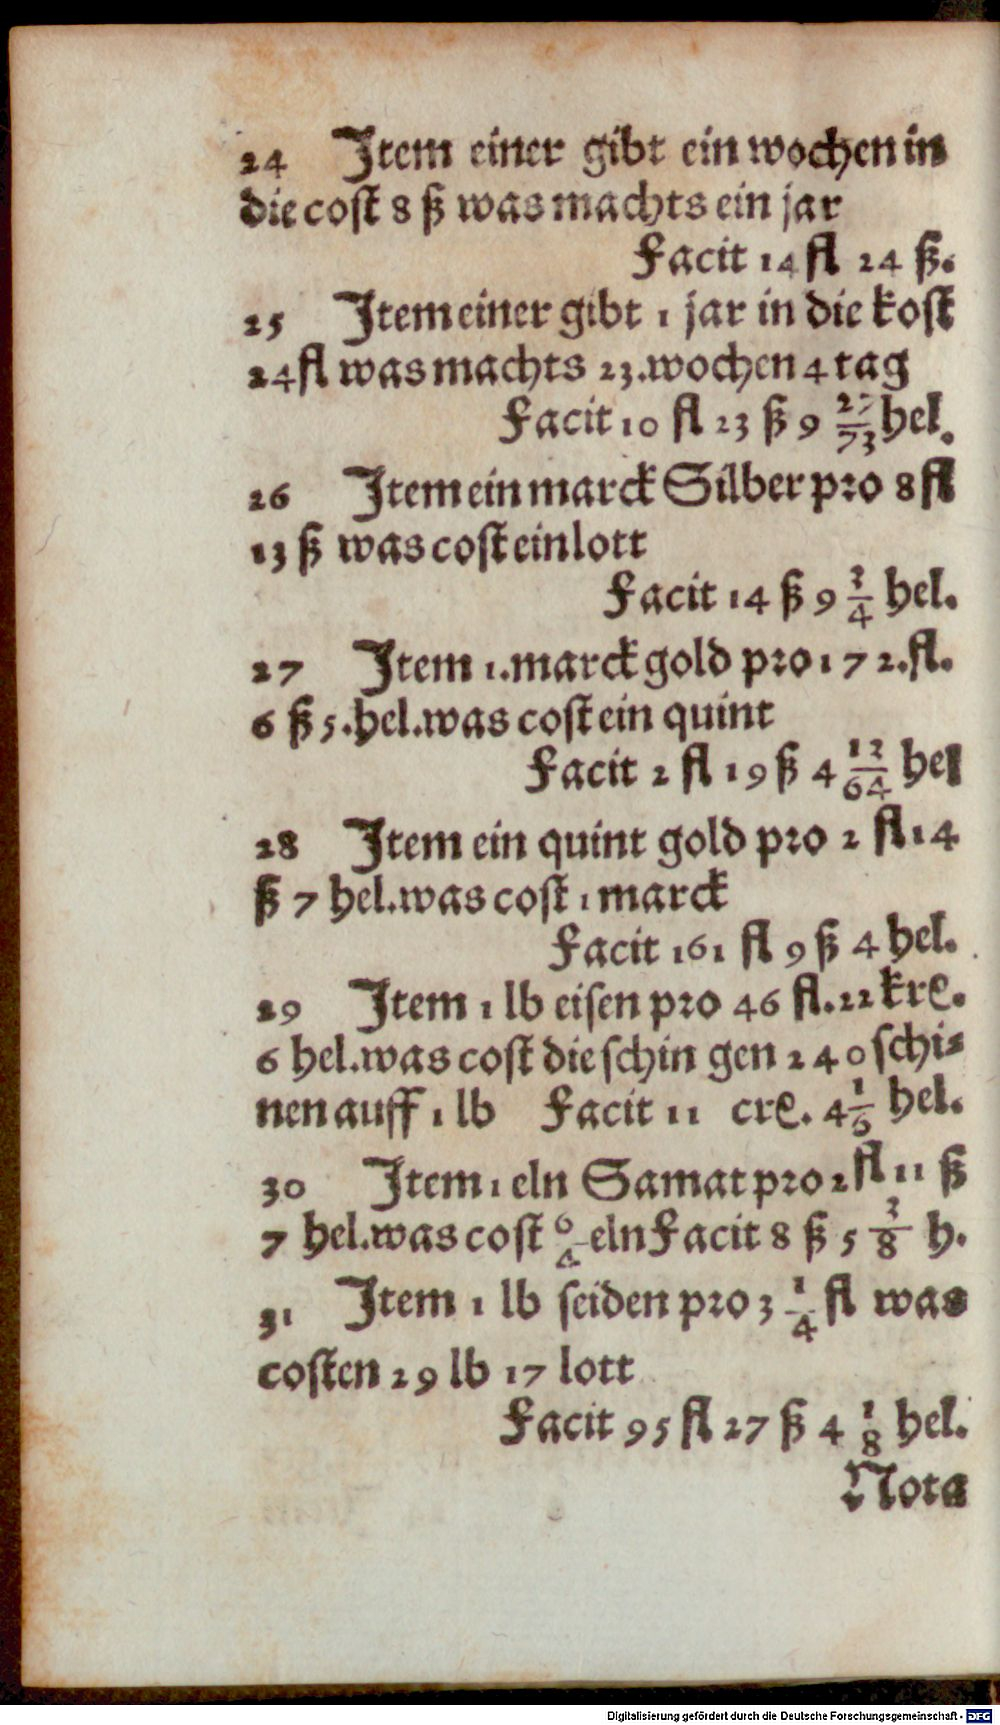 24 Item einer gibt ein wochen in
die cost 8 ß was machts ein jar
Facit 14 fl 24 ß.
25 Item einer gibt 1 jar in die kost
24 fl was machts 23. wochen 4 tag
Facit 10 fl 23 ß 9 27/73 hel.
26 Item ein marck Silber pro 8 fl
13 ß was cost ein lott
Facit 14 ß 9 3/4 hel.
27 Item 1. marck gold pro 172. fl.
6 ß 5. hel. was cost ein quint
Facit 2 fl 19 ß 4 12/64 hel
28 Item ein quint gold pro 2 fl 14
ß 7 hel. was cost 1 marck
Facit 161 fl 9 ß 4 hel.
29 Item 1 lb eisen pro 46 fl. 22 kre.
6 hel. was cost die schin gen 240 schi⸗
nen auff 1 lb Facit 11 cre. 4 1/6 hel.
30 Item 1 eln Samat pro 2 fl 11 ß
7 hel. was cost 6/4 eln Facit 8 ß 5 3/8 h.
31 Item 1 lb seiden pro 3 1/4 fl was
costen 29 lb 17 lott
Facit 95 fl 27 ß 4 1/8 hel.
Nota
Digitalisierung gefördert durch die Deutsche Forschungsgemeinschaft - DFG